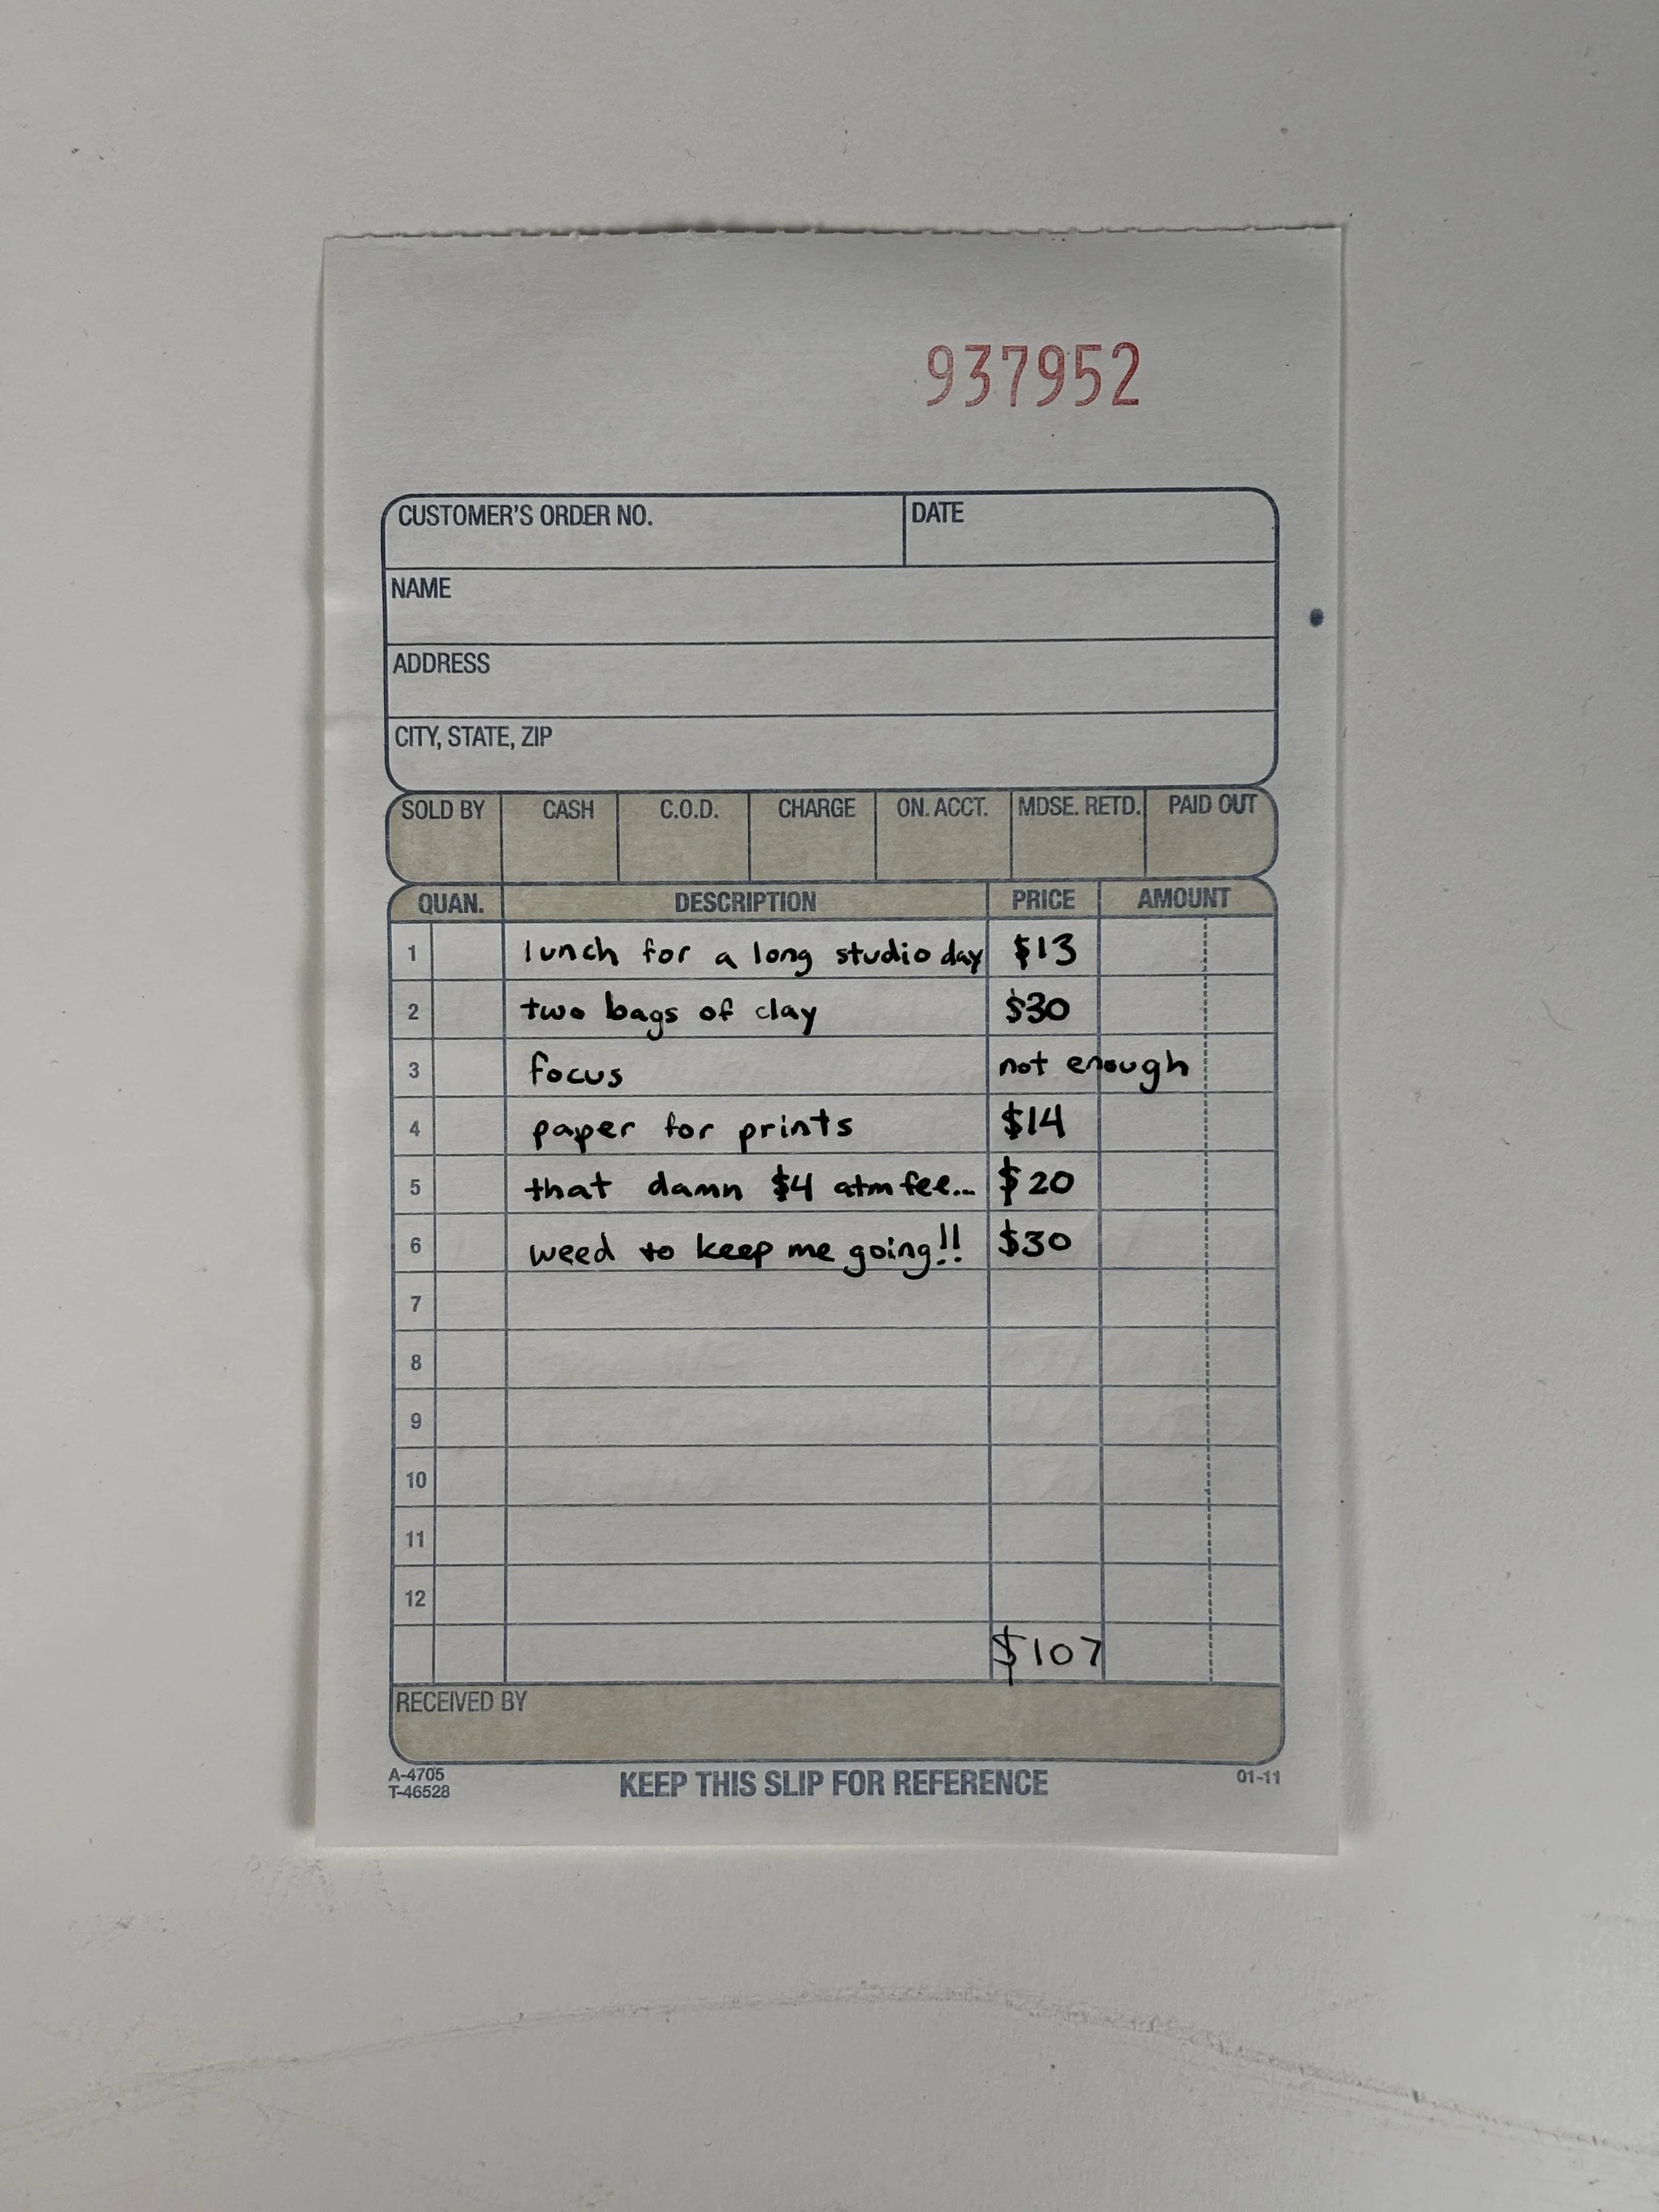 937952
CUSTOMER'S ORDER NO. DATE
NAME
ADDRESS
CITY, STATE, ZIP
SOLD BY CASH C.O.D. CHARGE ON. ACCT. MDSE. RETD. PAID OUT
QUAN. DESCRIPTION PRICE AMOUNT
1 lunch for a long studio day $13
2 two bags of clay $30
3 focus not enough
4 paper for prints $14
5 that damn $4 atm fee... $20
6 weed to keep me going!! $30
7
8
9
10
11
12
$107
RECEIVED BY
A-4705
T-46528
KEEP THIS SLIP FOR REFERENCE
01-11